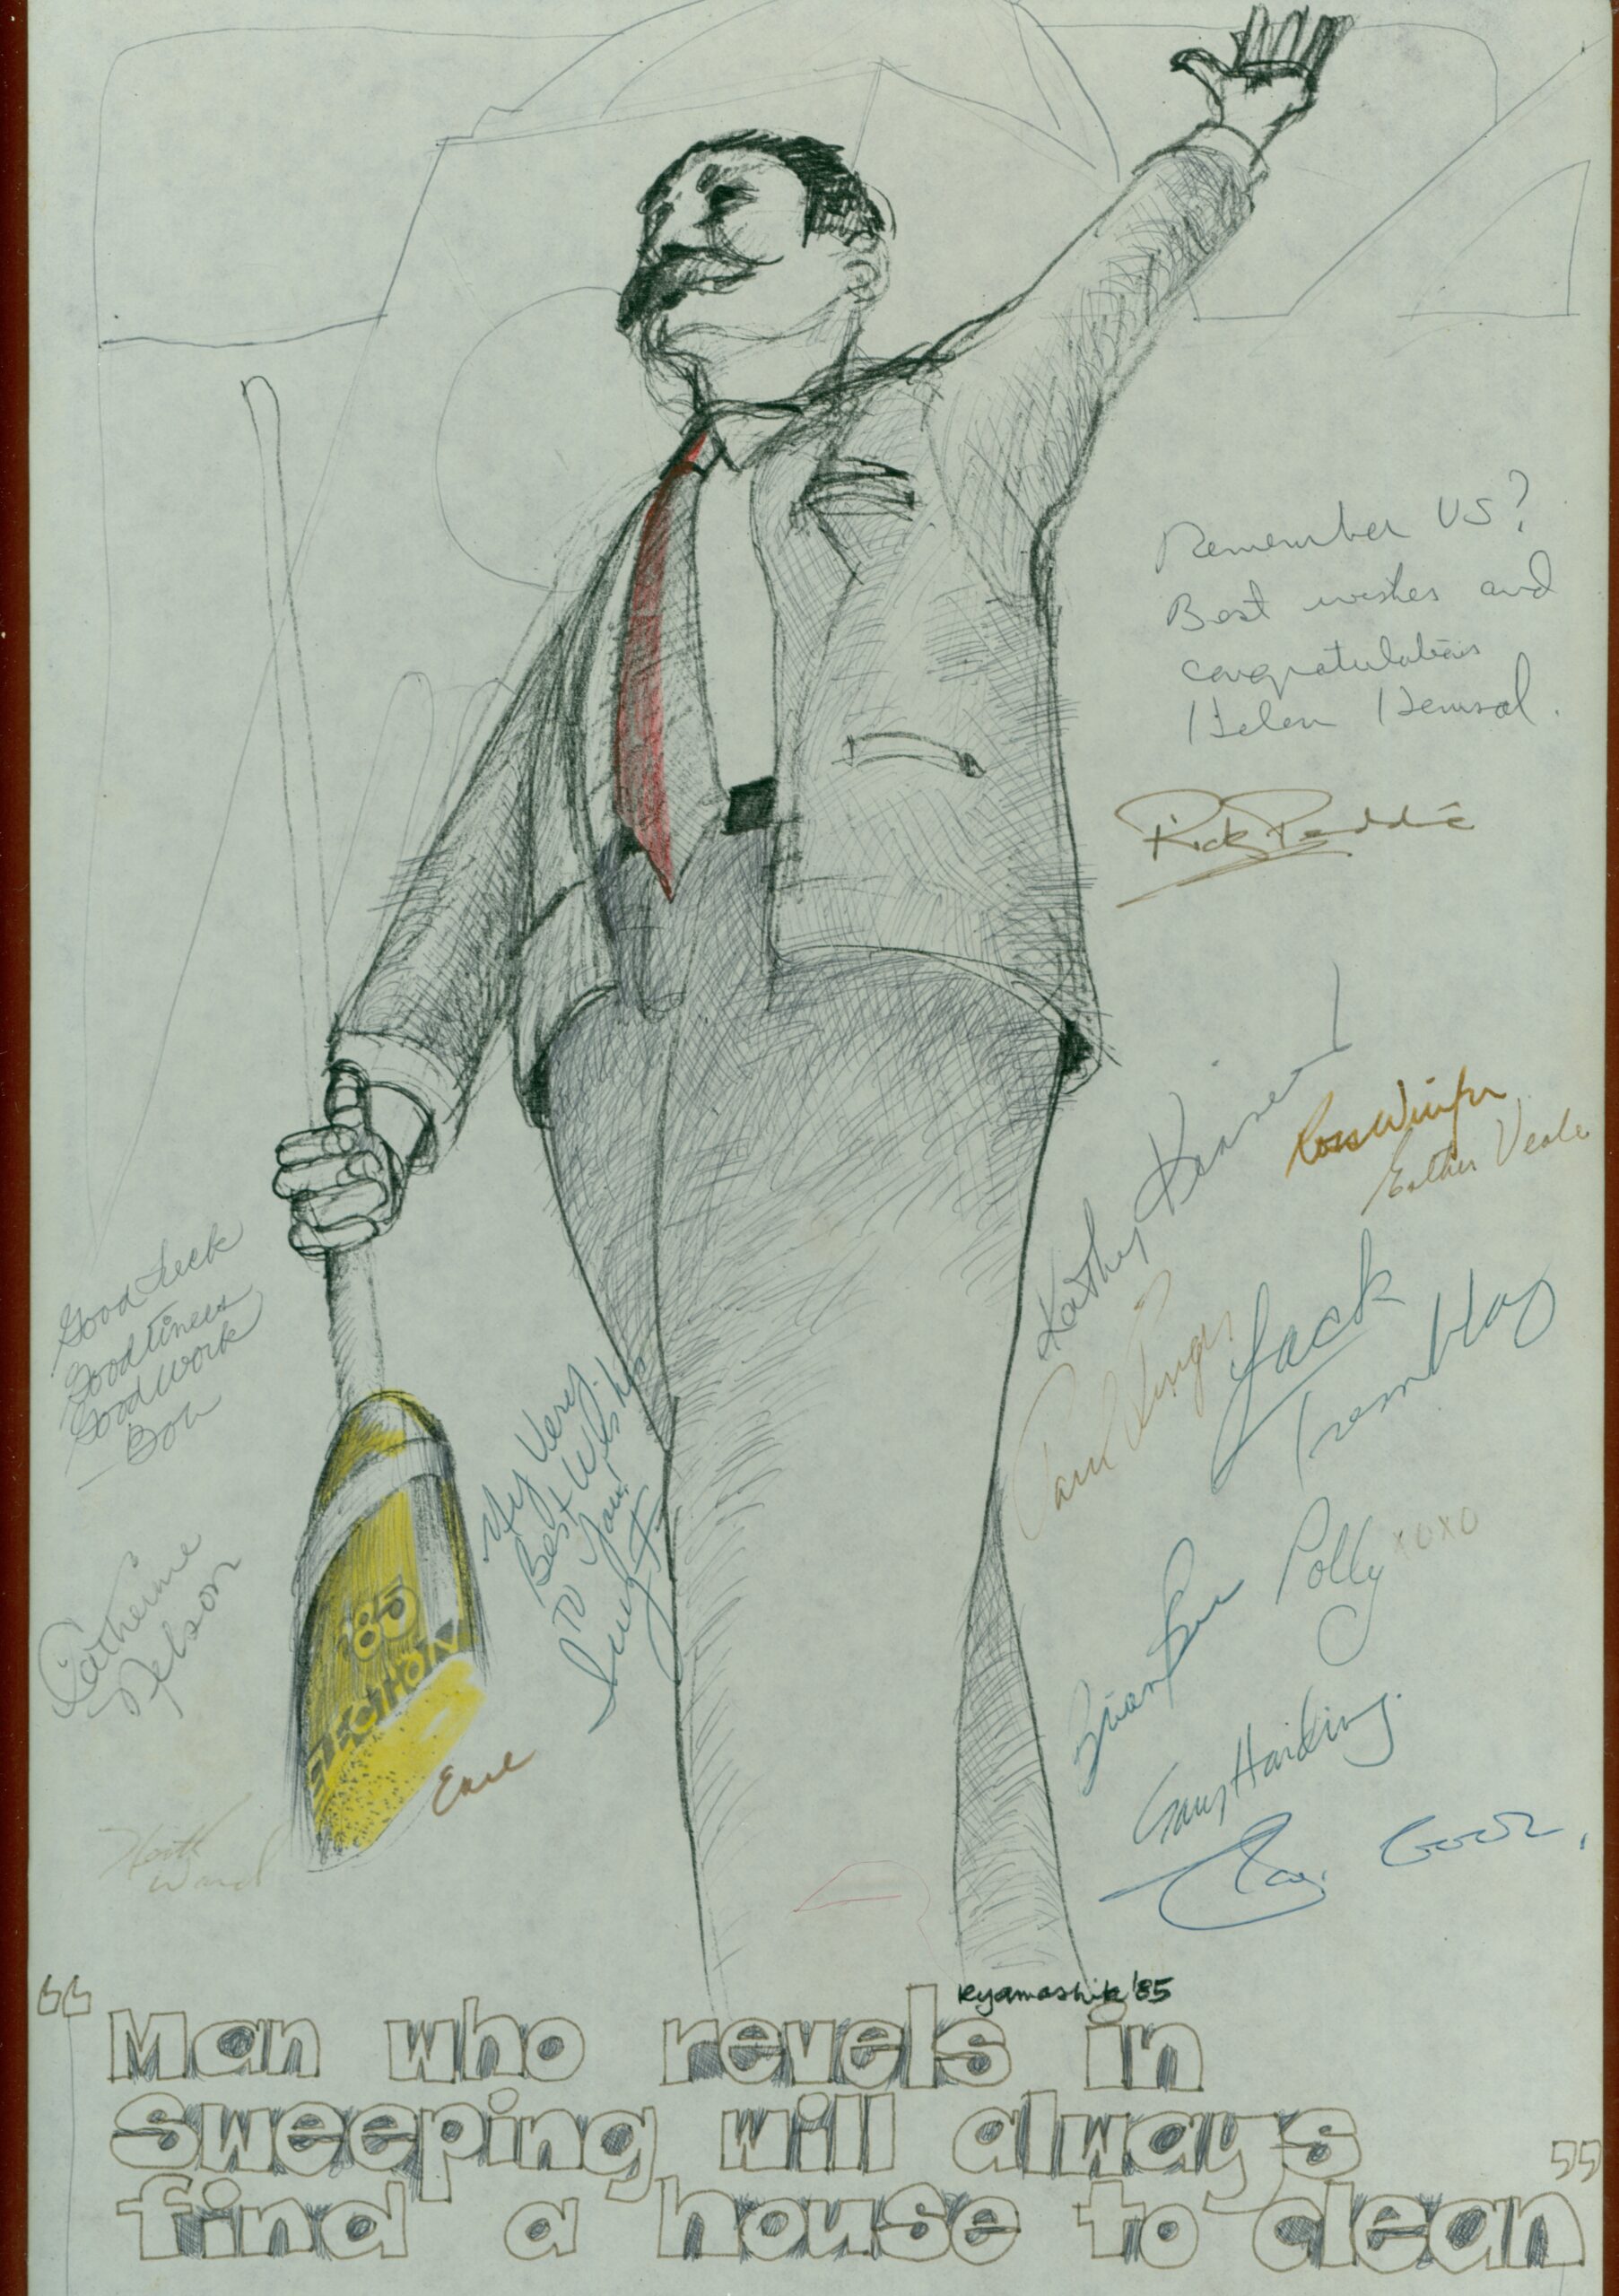 Remember US?
Best wishes and
congratulations
Helen
Rick Peddie
Kathy
Esther Veale
Good Luck
Good times
Good work
— Bob
Jack
Tremblay
Paul
My Very
Best Wishes
TO You!
Polly XOXO
Brian
Catherine
Nelson
'85
ELECTION
Gary Harding.
Earl
Keith
Ward
Kyamashita '85
“Man who revels in
sweeping will always
find a house to clean”